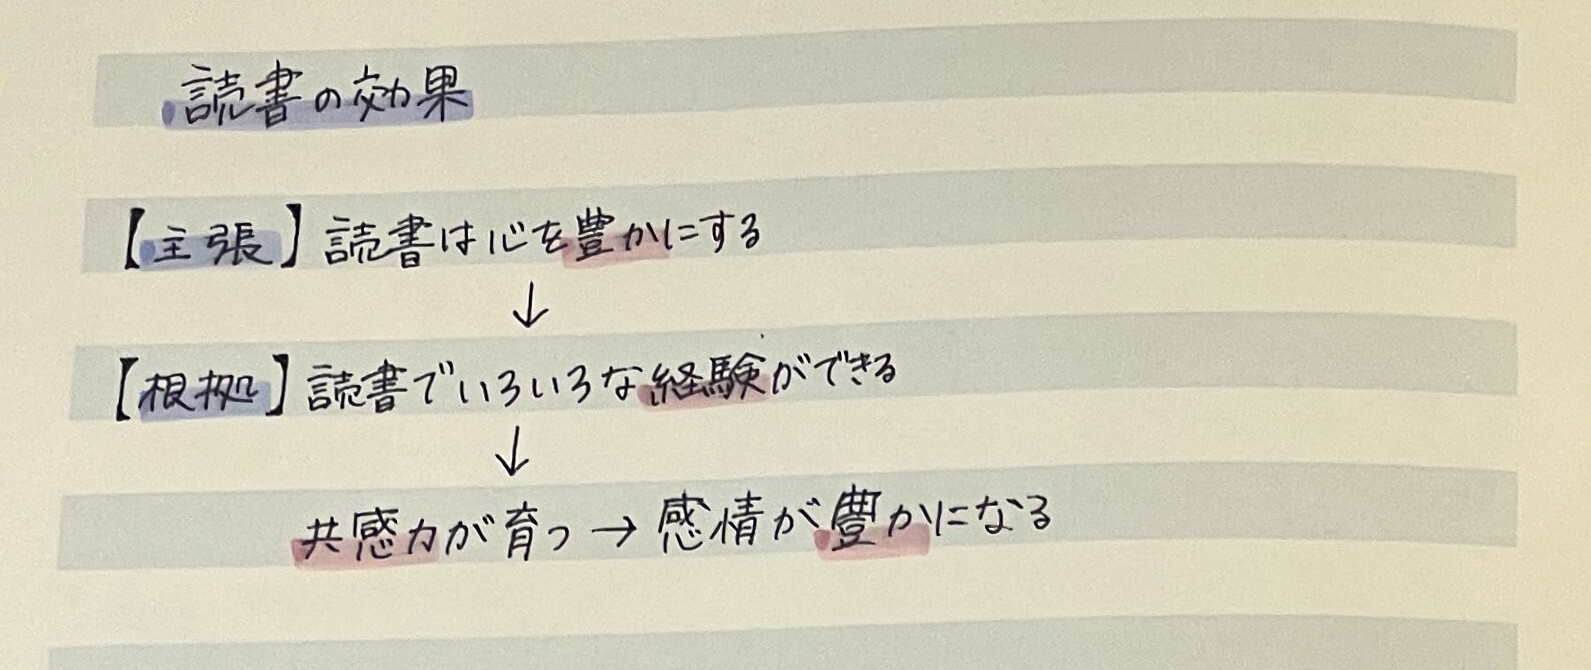 読書の効果
【主張】読書は心を豊かにする
↓
【根拠】読書でいろいろな経験ができる
↓
共感力が育つ→感情が豊かになる